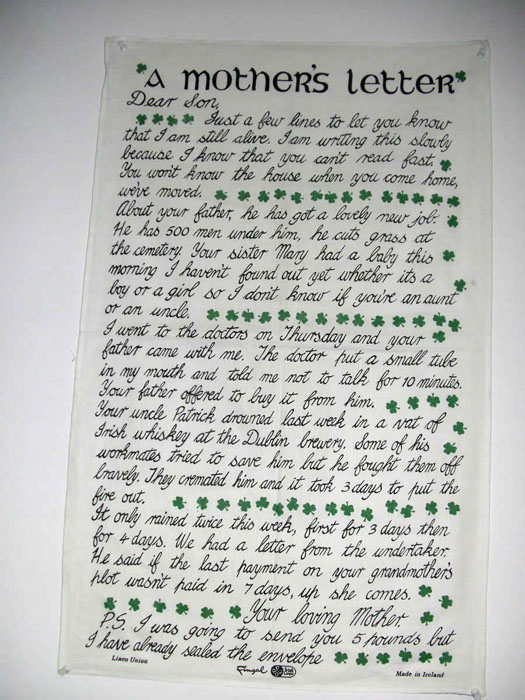 a mother's letter
Dear Son,
Just a few lines to let you know
that I am still alive. I am writing this slowly
because I know that you can't read fast.
You won't know the house when you come home,
we've moved.
About your father, he has got a lovely new job.
He has 500 men under him, he cuts grass at
the cemetery. Your sister Mary had a baby this
morning I haven't found out yet whether its a
boy or a girl so I don't know if you're an aunt
or an uncle.
I went to the doctors on Thursday and your
father came with me. The doctor put a small tube
in my mouth and told me not to talk for 10 minutes.
Your father offered to buy it from him.
Your uncle Patrick drowned last week in a vat of
Irish whiskey at the Dublin brewery. Some of his
workmates tried to save him but he fought them off
bravely. They cremated him and it took 3 days to put the
fire out.
It only rained twice this week, first for 3 days then
for 4 days. We had a letter from the undertaker.
He said if the last payment on your grandmother's
plot wasn't paid in 7 days, up she comes.
Your loving Mother
P.S. I was going to send you 5 pounds but
I have already sealed the envelope
Linen Union Fingal Made in Ireland